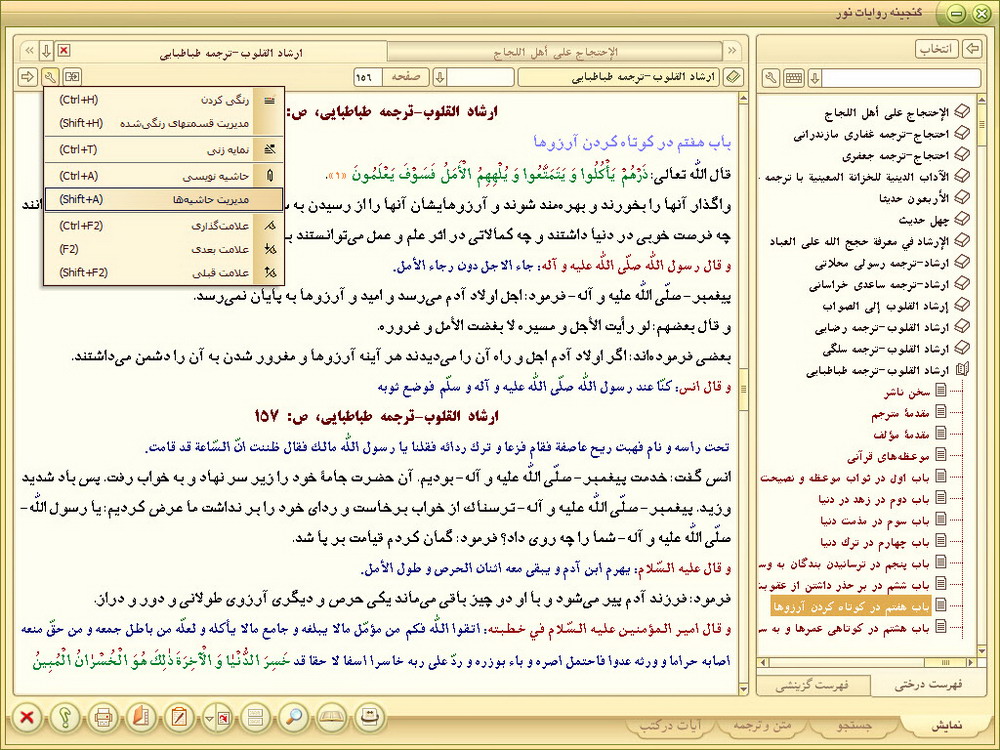 گنجینه روایات نور
انتخاب
الإحتجاج على أهل اللجاج
ارشاد القلوب-ترجمه طباطبایی
ارشاد القلوب-ترجمه طباطبایی
صفحه
۱۵۶
رنگی کردن (Ctrl+H)
مدیریت قسمتهای رنگی‌شده (Shift+H)
نمایه زنی (Ctrl+T)
حاشیه نویسی (Ctrl+A)
مدیریت حاشیه‌ها (Shift+A)
علامت‌گذاری (Ctrl+F2)
علامت بعدی (F2)
علامت قبلی (Shift+F2)
ارشاد القلوب-ترجمه طباطبایی، ص:
باب هفتم در کوتاه کردن آرزوها
قال الله تعالى: ذَرْهُمْ يَأْكُلُوا وَ يَتَمَتَّعُوا وَ يُلْهِهِمُ الْأَمَلُ فَسَوْفَ يَعْلَمُونَ «۱».
واگذار آنها را بخورند و بهره‌مند شوند و آرزوهایشان آنها را از رسیدن به
انند
چه فرصت خوبی در دنیا داشتند و چه کمالاتی در اثر علم و عمل می‌توانستند
و قال رسول الله صلّى الله عليه و آله: جاء الاجل دون رجاء الأمل.
پیغمبر-صلّی الله علیه و آله-فرمود: اجل اولاد آدم می‌رسد و امید و آرزوها به پایان نمی‌رسد.
و قال بعضهم: لو رأيت الأجل و مسيره لا بغضت الأمل و غروره.
بعضی فرموده‌اند: اگر اولاد آدم اجل و راه آن را می‌دیدند هر آینه آرزوها و مغرور شدن به آن را دشمن می‌داشتند.
و قال انس: كنّا عند رسول الله صلّى الله عليه و آله و سلّم فوضع ثوبه
ارشاد القلوب-ترجمه طباطبایی، ص: ۱۵۷
تحت راسه و نام فهبت ريح عاصفة فقام فزعا و ترك ردائه فقلنا يا رسول الله مالك فقال ظننت انّ السّاعة قد قامت.
انس گفت: خدمت پیغمبر-صلّی الله علیه و آله-بودیم. آن حضرت جامهٔ خود را زیر سر نهاد و به خواب رفت. پس باد شدید
وزید. پیغمبر-صلّی الله علیه و آله-ترسناك از خواب برخاست و ردای خود را بر نداشت ما عرض کردیم: یا رسول الله-
صلّی الله علیه و آله-شما را چه روی داد؟ فرمود: گمان کردم قیامت بر پا شد.
و قال عليه السّلام: يهرم ابن آدم و يبقى معه اثنان الحرص و طول الأمل.
فرمود: فرزند آدم پیر می‌شود و با او دو چیز باقی می‌ماند یکی حرص و دیگری آرزوی طولانی و دور و دراز.
و قال امير المؤمنين عليه السّلام في خطبته: اتقوا الله فكم من مؤمّل مالا يبلغه و جامع مالا يأكله و لعلّه من باطل جمعه و من حقّ منعه
اصابه حراما و ورثه عدوا فاحتمل اصره و باء بوزره و ردّ على ربه خاسرا اسفا لا حقا قد خَسِرَ الدُّنْيَا وَ الْآخِرَةَ ذٰلِكَ هُوَ الْخُسْرَانُ الْمُبِينُ
الإحتجاج على أهل اللجاج
احتجاج-ترجمه غفاری مازندرانی
احتجاج-ترجمه جعفری
الآداب الدينية للخزانة المعينية با ترجمه
الأربعون حديثا
چهل حدیث
الإرشاد في معرفة حجج الله على العباد
ارشاد-ترجمه رسولی محلاتی
ارشاد-ترجمه ساعدی خراسانی
إرشاد القلوب إلى الصواب
ارشاد القلوب-ترجمه رضایی
ارشاد القلوب-ترجمه سلگی
ارشاد القلوب-ترجمه طباطبایی
سخن ناشر
مقدمهٔ مترجم
مقدمهٔ مؤلف
موعظه‌های قرآنی
باب اول در ثواب موعظه و نصیحت
باب دوم در زهد در دنیا
باب سوم در مذمت دنیا
باب چهارم در ترك دنیا
باب پنجم در ترسانیدن بندگان به وس
باب ششم در بر حذر داشتن از عقوبت
باب هفتم در کوتاه کردن آرزوها
باب هشتم در کوتاهی عمرها و به سر
فهرست درختی
فهرست گزینشی
نمایش
جستجو
متن و ترجمه
آیات در کتب